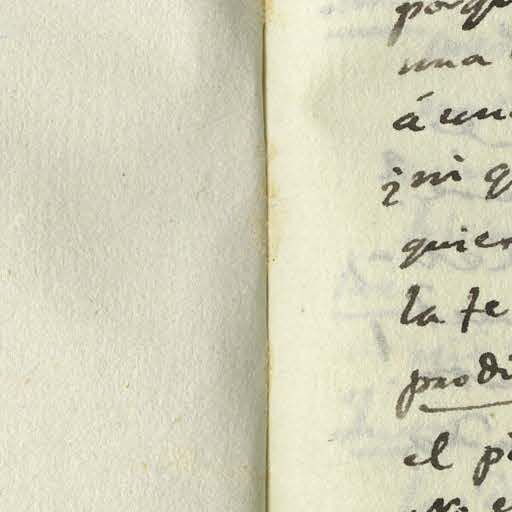 porqu
una
á un
¡ni q
quier
la fe
prodi
el pi